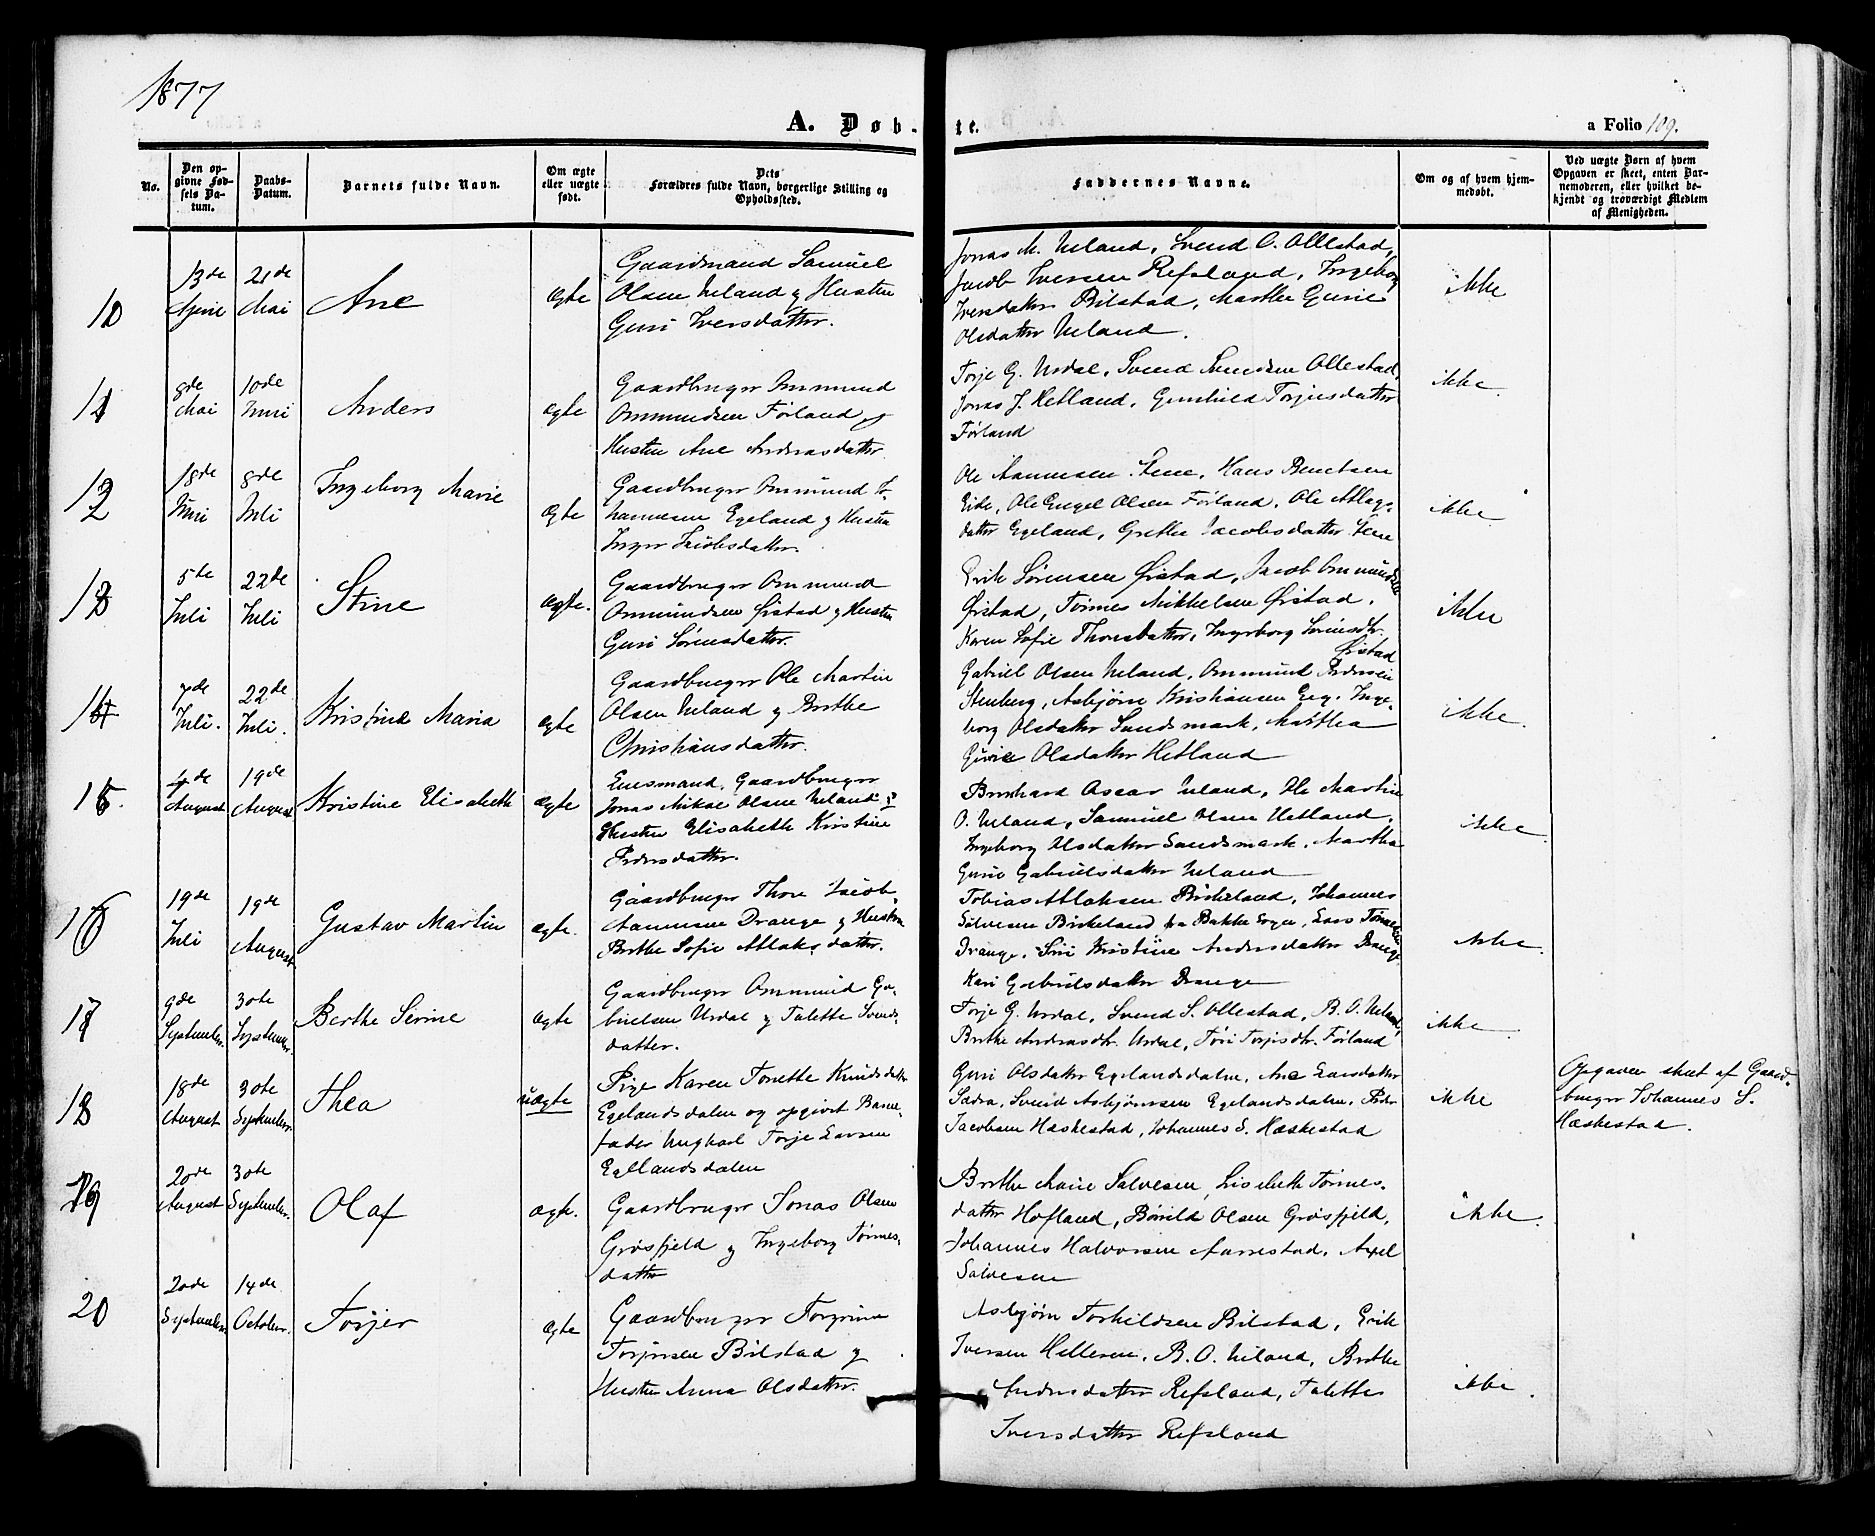 1877
A. Døb-
te.
a Folio 109.
No.
Den op-
givne Fød-
sels Da-
tum.
Daabs-
Datum.
Barnets fulde Navn.
Om ægte
eller uægte
født.
Dets
Forældres fulde Navn, borgerlige Stilling og
Opholdssted.
Faddernes Navne.
Om og af hvem hjem-
medøbt.
Ved uægte Børn af hvem
Opgaven er skeet, enten Bar-
nemoderen, eller hvilket be-
kjendt og troværdigt Medlem
af Menigheden.
10
13de
April
21de
Mai
Ane
ægte
Gaardmand Samuel
Olsen Ueland og Hustru
Guri Iversdatter.
Jonas M. Ueland, Svend O. Ollestad,
Jacob Iversen Refsland, Ingeborg
Iversdatter Bilstad, Marthe Gurie
Olsdatter Ueland.
ikke
11
8de
Mai
10de
Juni
Anders
ægte
Gaardbruger Ommund
Ommundsen Førland og
Hustru Ane Andreasdatter.
Torje G. Urdal, Svend Svendsen Ollestad,
Jonas J. Hetland, Gunhild Torjesdatter
Førland
ikke.
12
18de
Juni
8de
Juli
Ingeborg Marie
ægte
Gaardbruger Ommund To-
nnesen Egeland og Hustru
Inger Jacobsdatter.
Ole Aanensen Eene, Hans Berntsen
Eide, Ole Engel Olsen Førland, Ole Atlags-
datter Egeland, Grethe Jacobsdatter Eene
ikke
13
5te
Juli
22de
Juli
Stine
ægte.
Gaardbruger Ommund
Ommundsen Ørstad og Hustru
Guri Sørensdatter.
Erik Sørensen Ørstad, Jacob Ommundsen
Ørstad, Tønnes Mikkelsen Ørstad,
Karen Sofie Thorsdatter, Ingeborg Sørensdtr.
Ørstad
ikke
14
7de
Juli.
22de
Juli.
Kristine Maria
ægte
Gaardbruger Ole Martin
Olsen Ueland og Berthe
Christiansdatter.
Gabriel Olsen Ueland, Ommund Pedersen
Stenberg, Asbjørn Kristiansen Eeg, Inge-
borg Olsdatter Sandsmark, Martha
Gurie Olsdatter Hetland
ikke.
15.
4de
August
19de
August
Kristine Elisabeth
ægte
Enesmand, Gaardbruger
Jonas Mikal Olsen Ueland og
Hustru Elisabeth Kirstine
Pedersdatter.
Bernhard Oscar Ueland, Ole Martin
O. Ueland, Samuel Olsen Hetland,
Ingeborg Olsdatter Sandsmark, Martha
Gurie Gabrielsdatter Ueland
ikke.
16
19de
Juli
19de
August
Gustav Martin
ægte.
Gaardbruger Thore Jacob
Aanensen Drange og Hustru
Berthe Sofie Atlaksdatter.
Tobias Atlaksen Birkeland, Johannes
Salvesen Birkeland fra Bakke Sogn, Lars Tønnesen
Drange, Siri Kristine Andersdatter Drange,
Kari Gabrielsdatter Drange
ikke.
17
9de
September.
30te
September.
Berthe Serine
ægte
Gaardbruger Ommund Ga-
brielsen Urdal og Talette Svends-
datter.
Torje G. Urdal, Svend S. Ollestad, B. O. Ueland,
Berthe Andreasdtr. Urdal, Tøri Torjesdtr. Førland
ikke
18
18de
August
30te
September.
Thea
uægte
Pige Karen Tonette Knudsdatter
Egelandsdalen og opgivet Barne-
fader Ungkarl Torje Larsen
Egelandsdalen
Guri Olsdatter Egelandsdalen, Ane Larsdatter
Sædra, Svend Asbjørnsen Egelandsdalen, Peder
Jacobsen Hæskestad, Johannes S. Hæskestad
ikke
Opgaven skeet af Gaard-
bruger Johannes S.
Hæskestad.
19
20de
August
30te
September.
Olaf
ægte.
Gaardbruger Jonas Olsen
Grøsfjeld og Ingeborg Tønnes-
datter
Berthe Marie Salvesen, Lisebeth Tønnes-
datter Hofland, Børild Olsen Grøsfjeld,
Johannes Halvorsen Aarrestad, Axel
Salvesen
ikke.
20
20de
September.
14de
October.
Torjer
ægte
Gaardbruger Torgrim
Torjersen Bilstad og
Hustru Anna Olsdatter.
Asbjørn Torkildsen Bilstad, Erik
Iversen Helleren, B. O. Ueland, Berthe
Andersdatter Refsland, Talette
Iversdatter Refsland
ikke.